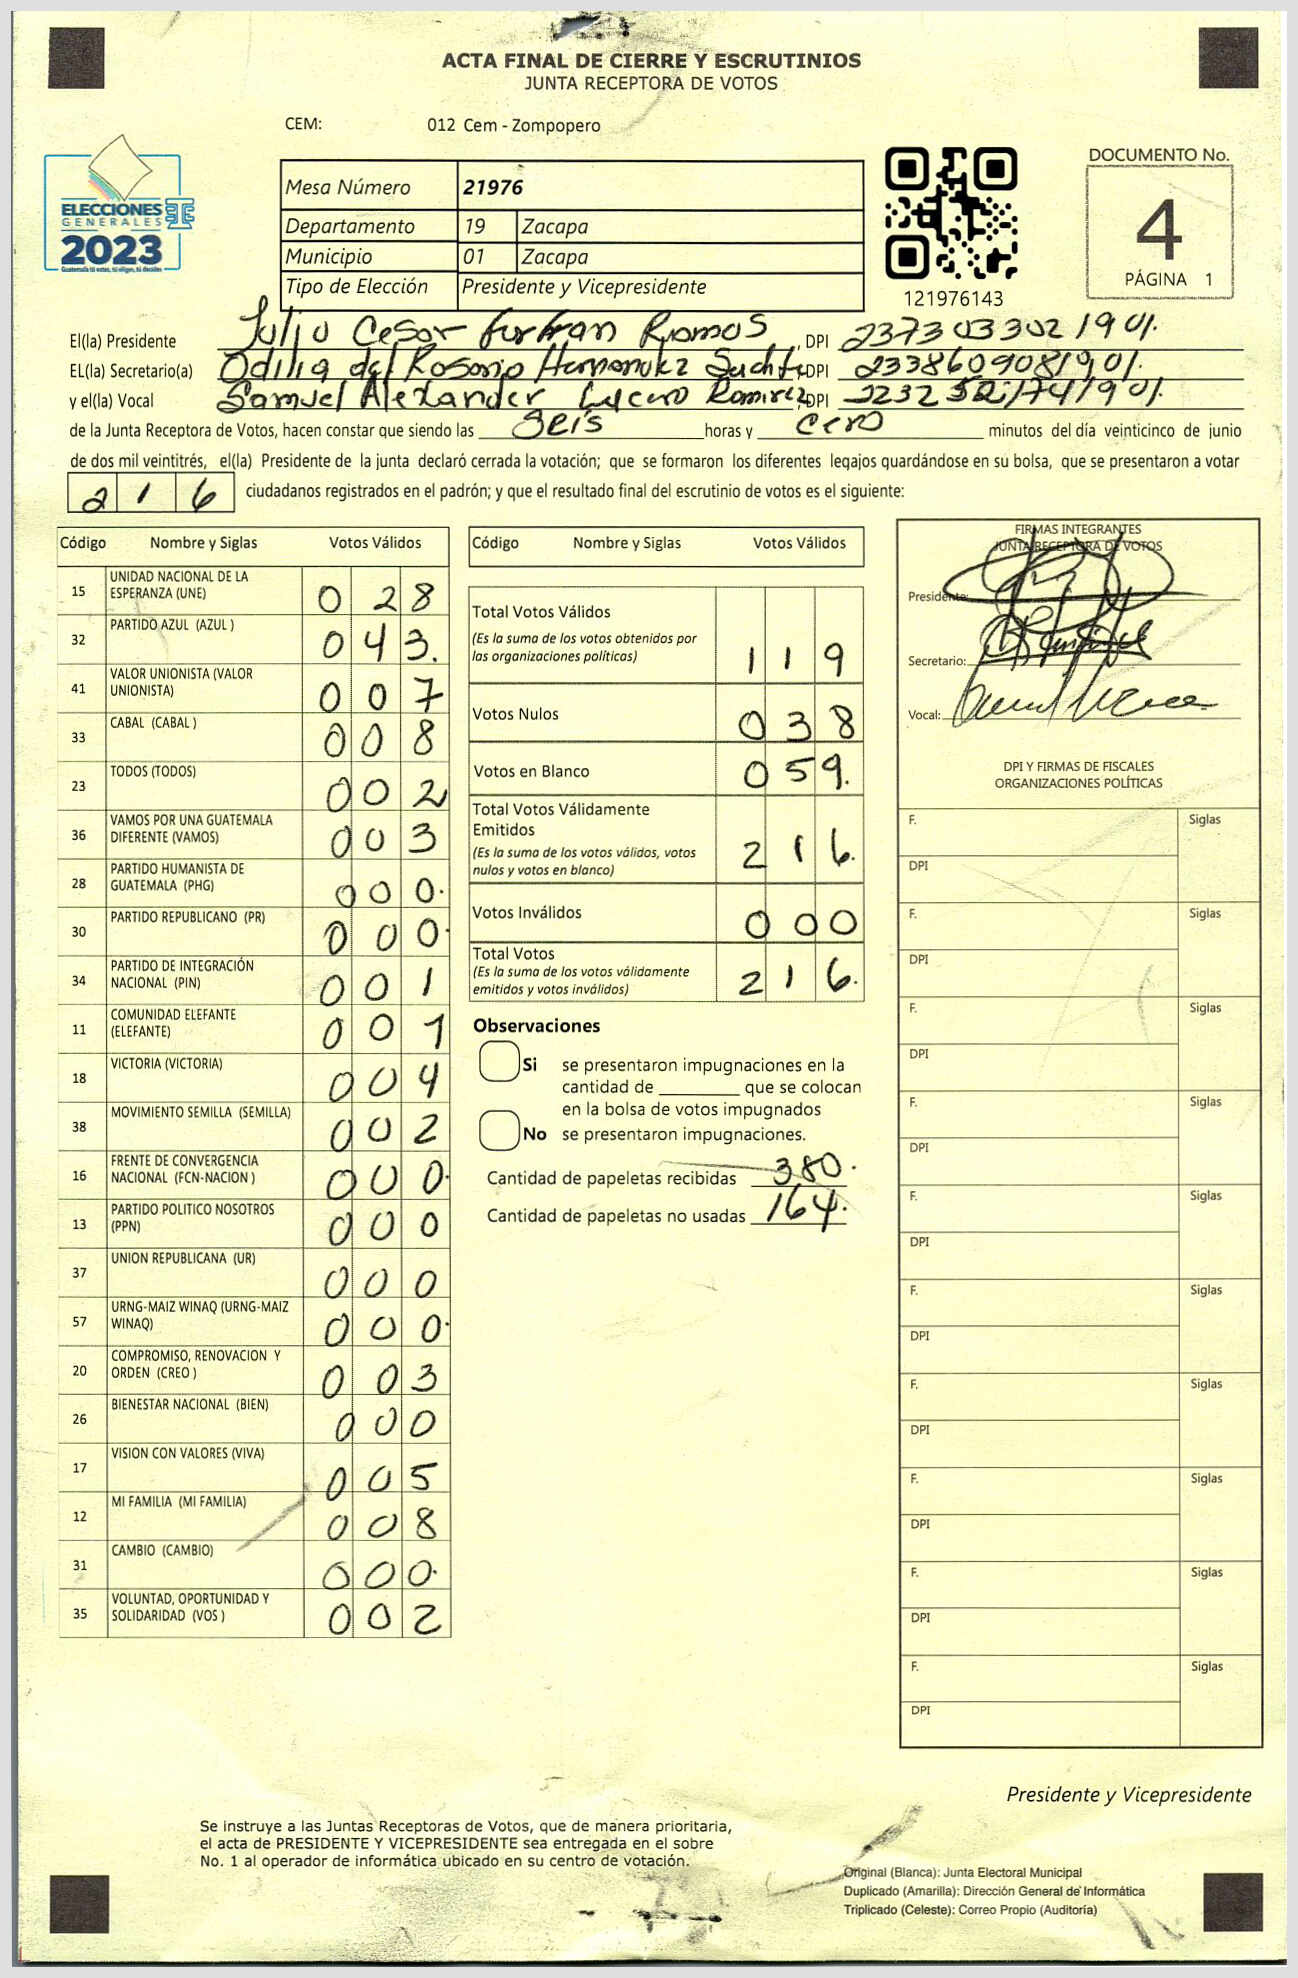 ACTA FINAL DE CIERRE Y ESCRUTINIOS
JUNTA RECEPTORA DE VOTOS
CEM: 012 Cem - Zompopero
ELECCIONES
GENERALES
2023
Guatemala tú votas, tú eliges, tú decides
Mesa Número 21976
Departamento 19 Zacapa
Municipio 01 Zacapa
Tipo de Elección Presidente y Vicepresidente
121976143
DOCUMENTO No.
4
PÁGINA 1
El(la) Presidente Julio Cesar Ramos, DPI 2373033021901.
EL(la) Secretario(a) Odilia del Rosario, DPI 2338609081901.
y el(la) Vocal Samuel Alexander Lucero Ramirez, DPI
de la Junta Receptora de Votos, hacen constar que siendo las seis horas y cero minutos del día veinticinco de junio
de dos mil veintitrés, el(la) Presidente de la junta declaró cerrada la votación; que se formaron los diferentes legajos guardándose en su bolsa, que se presentaron a votar
216 ciudadanos registrados en el padrón; y que el resultado final del escrutinio de votos es el siguiente:
Código Nombre y Siglas Votos Válidos
15 UNIDAD NACIONAL DE LA ESPERANZA (UNE) 028
32 PARTIDO AZUL (AZUL ) 043.
41 VALOR UNIONISTA (VALOR UNIONISTA) 007
33 CABAL (CABAL ) 008
23 TODOS (TODOS) 002
36 VAMOS POR UNA GUATEMALA DIFERENTE (VAMOS) 003
28 PARTIDO HUMANISTA DE GUATEMALA (PHG) 000.
30 PARTIDO REPUBLICANO (PR) 000.
34 PARTIDO DE INTEGRACIÓN NACIONAL (PIN) 001
11 COMUNIDAD ELEFANTE (ELEFANTE) 001
18 VICTORIA (VICTORIA) 004
38 MOVIMIENTO SEMILLA (SEMILLA) 002
16 FRENTE DE CONVERGENCIA NACIONAL (FCN-NACION ) 000.
13 PARTIDO POLITICO NOSOTROS (PPN) 000
37 UNION REPUBLICANA (UR) 000
57 URNG-MAIZ WINAQ (URNG-MAIZ WINAQ) 000.
20 COMPROMISO, RENOVACION Y ORDEN (CREO ) 003
26 BIENESTAR NACIONAL (BIEN) 000
17 VISION CON VALORES (VIVA) 005
12 MI FAMILIA (MI FAMILIA) 008
31 CAMBIO (CAMBIO) 000.
35 VOLUNTAD, OPORTUNIDAD Y SOLIDARIDAD (VOS ) 002
Código Nombre y Siglas Votos Válidos
Total Votos Válidos
(Es la suma de los votos obtenidos por
las organizaciones políticas) 119
Votos Nulos 038
Votos en Blanco 059.
Total Votos Válidamente
Emitidos
(Es la suma de los votos válidos, votos
nulos y votos en blanco) 216.
Votos Inválidos 000
Total Votos
(Es la suma de los votos válidamente
emitidos y votos inválidos) 216.
Observaciones
Si se presentaron impugnaciones en la
cantidad de ________ que se colocan
en la bolsa de votos impugnados
No se presentaron impugnaciones.
Cantidad de papeletas recibidas 380.
Cantidad de papeletas no usadas 164.
FIRMAS INTEGRANTES
JUNTA RECEPTORA DE VOTOS
Presidente:
Secretario:
Vocal:
DPI Y FIRMAS DE FISCALES
ORGANIZACIONES POLÍTICAS
F. Siglas
DPI
F. Siglas
DPI
F. Siglas
DPI
F. Siglas
DPI
F. Siglas
DPI
F. Siglas
DPI
F. Siglas
DPI
F. Siglas
DPI
F. Siglas
DPI
F. Siglas
DPI
Presidente y Vicepresidente
Se instruye a las Juntas Receptoras de Votos, que de manera prioritaria,
el acta de PRESIDENTE Y VICEPRESIDENTE sea entregada en el sobre
No. 1 al operador de informática ubicado en su centro de votación.
Original (Blanca): Junta Electoral Municipal
Duplicado (Amarilla): Dirección General de Informática
Triplicado (Celeste): Correo Propio (Auditoría)